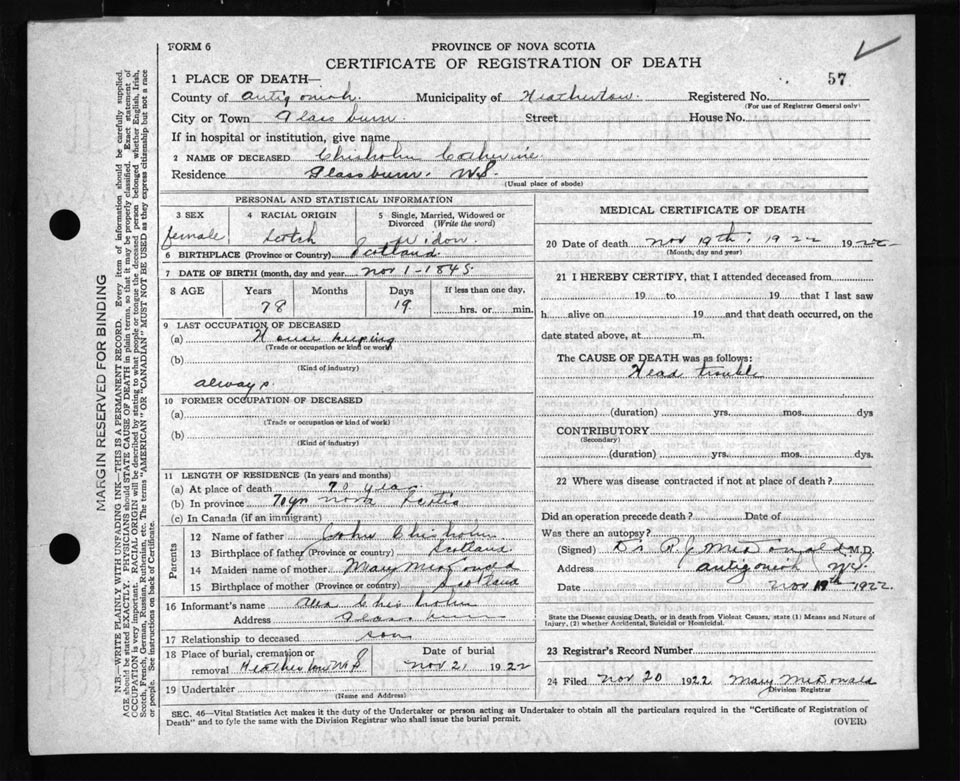 FORM 6
PROVINCE OF NOVA SCOTIA
CERTIFICATE OF REGISTRATION OF DEATH
57
1 PLACE OF DEATH—
County of Antigonish. Municipality of Heatherton. Registered No.
(For use of Registrar General only)
City or Town Glassburn. Street House No.
If in hospital or institution, give name
2 NAME OF DECEASED Chisholm Catherine.
Residence Glassburn. N.S.
(Usual place of abode)
PERSONAL AND STATISTICAL INFORMATION
3 SEX 4 RACIAL ORIGIN 5 Single, Married, Widowed or Divorced (Write the word)
female Scotch Widow.
6 BIRTHPLACE (Province or Country) Scotland.
7 DATE OF BIRTH (month, day and year) Nov 1-1845
8 AGE Years Months Days If less than one day,
78 19 hrs. or min.
9 LAST OCCUPATION OF DECEASED
(a) House keeping
(Trade or occupation or kind or work)
(b)
(Kind of industry)
always
10 FORMER OCCUPATION OF DECEASED
(a)
(Trade or occupation or kind of work)
(b)
(Kind of industry)
11 LENGTH OF RESIDENCE (In years and months)
(a) At place of death 70 year
(b) In province 70 yr Nova Scotia
(c) In Canada (if an immigrant)
Parents
12 Name of father John Chisholm
13 Birthplace of father (Province or country) Scotland
14 Maiden name of mother. Mary
15 Birthplace of mother (Province or country) Scotland
16 Informant's name Alex Chisholm
Address Glassburn
17 Relationship to deceased son
18 Place of burial, cremation or removal Heatherton N S Date of burial Nov 21 1922
19 Undertaker
(Name and Address)
MEDICAL CERTIFICATE OF DEATH
20 Date of death Nov 19th, 1922 1922
(Month, day and year)
21 I HEREBY CERTIFY, that I attended deceased from
19 to 19 that I last saw
h alive on 19 and that death occurred, on the
date stated above, at m.
The CAUSE OF DEATH was as follows:
Head trouble
(duration) yrs. mos. dys
CONTRIBUTORY
(Secondary)
(duration) yrs. mos. dys.
22 Where was disease contracted if not at place of death?
Did an operation precede death? Date of
Was there an autopsy?
(Signed) Dr. R. J. McDonald M.D.
Address Antigonish N.S.
Date Nov 19th 1922.
State the Disease causing Death, or in death from Violent Causes, state (1) Means and Nature of Injury, (2) whether Accidental, Suicidal or Homicidal.
23 Registrar's Record Number
24 Filed Nov 20 1922 Mary McDonald
Division Registrar
SEC. 46—Vital Statistics Act makes it the duty of the Undertaker or person acting as Undertaker to obtain all the particulars required in the "Certificate of Registration of
Death" and to fyle the same with the Division Registrar who shall issue the burial permit.
(OVER)
MARGIN RESERVED FOR BINDING
N.B.—WRITE PLAINLY WITH UNFADING INK—THIS IS A PERMANENT RECORD. Every item of information should be carefully supplied.
AGE should be stated EXACTLY. PHYSICIANS should STATE CAUSE OF DEATH in plain terms, so that it may be properly classified. Exact statement of
OCCUPATION is very important. RACIAL ORIGIN will be described by stating to what people or tongue the deceased person belonged whether English, Irish,
Scotch, French, German, Russian, Ruthenian, etc. The terms "AMERICAN" OR "CANADIAN" MUST NOT BE USED as they express citizenship but not a race
or people. See instructions on back of Certificate.